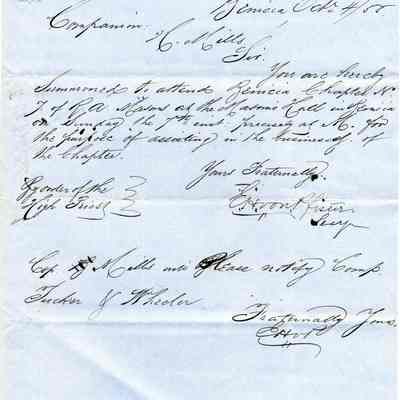 Benicia Oct 4/55
Companion
H. Mills
Sir
You are hereby
Summoned to attend Benicia Chapter No
7 of R A Masons at the Masonic Hall in Benicia
on Sunday the 7th inst at M. for
the purpose of assisting in the business of
the Chapter.
Yours Fraternally
By order of the
High Priest
E H von Pfister
Secy
Mills will Please notify Comp
Tucker & Wheeler
Fraternally Yours
EHvP